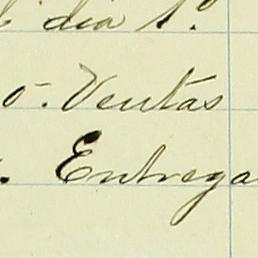 dia 1.º
o. Ventas
. Entrega